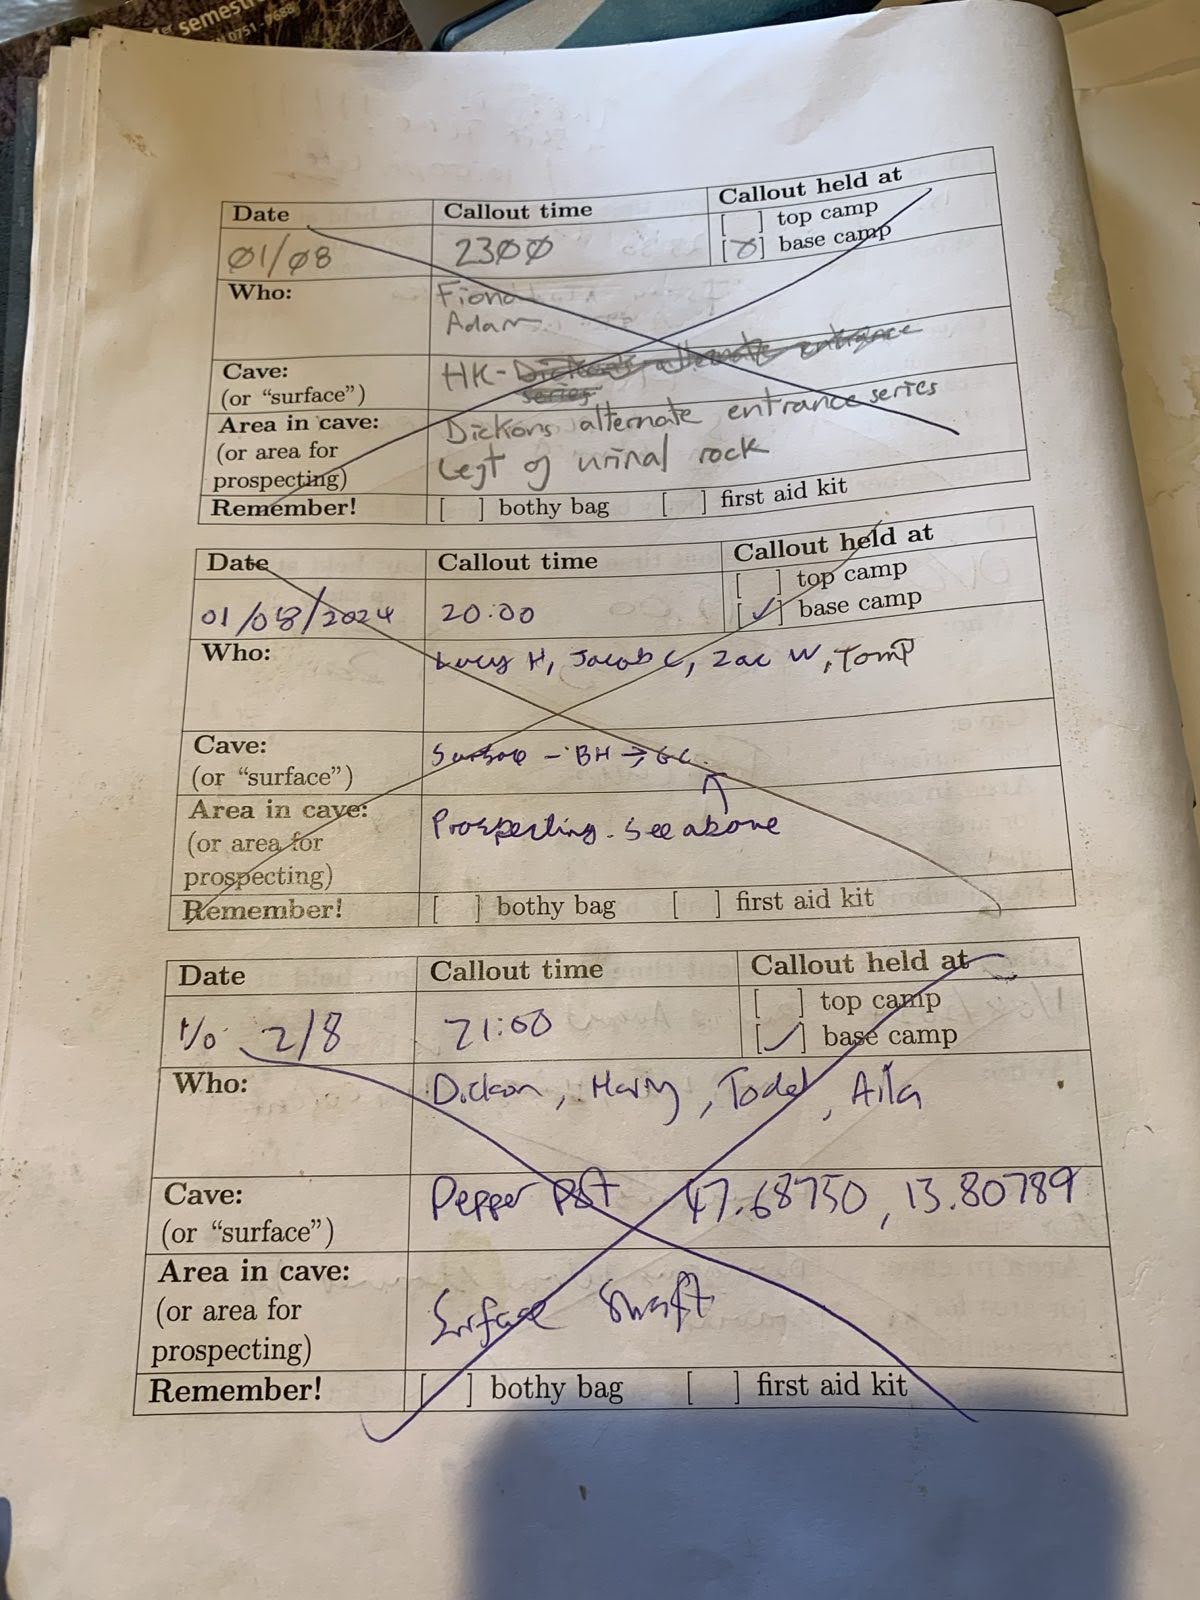 semest
0751 -
Date Callout time Callout held at
[ ] top camp
01/08 2300 [x] base camp
Who: Fiona
Adam
Cave: HK- Dickon's alternate entrance
(or “surface”) series
Area in cave: Dickons alternate entrance series
(or area for
prospecting) Left of urinal rock
Remember! [ ] bothy bag [ ] first aid kit
Date Callout time Callout held at
[ ] top camp
01/08/2024 20:00 [✓] base camp
Who: Lucy H, Jacob C, Zac W, TomP
Cave: Surface - BH → GC.
(or “surface”)
Area in cave: ↑
(or area for Prospecting. See above
prospecting)
Remember! [ ] bothy bag [ ] first aid kit
Date Callout time Callout held at
[ ] top camp
2/8 21:00 [✓] base camp
Who: Dickon, Harry, Todd, Aila
Cave: Pepper Pot 47.68750, 13.80789
(or “surface”)
Area in cave:
(or area for Surface Shaft
prospecting)
Remember! [ ] bothy bag [ ] first aid kit